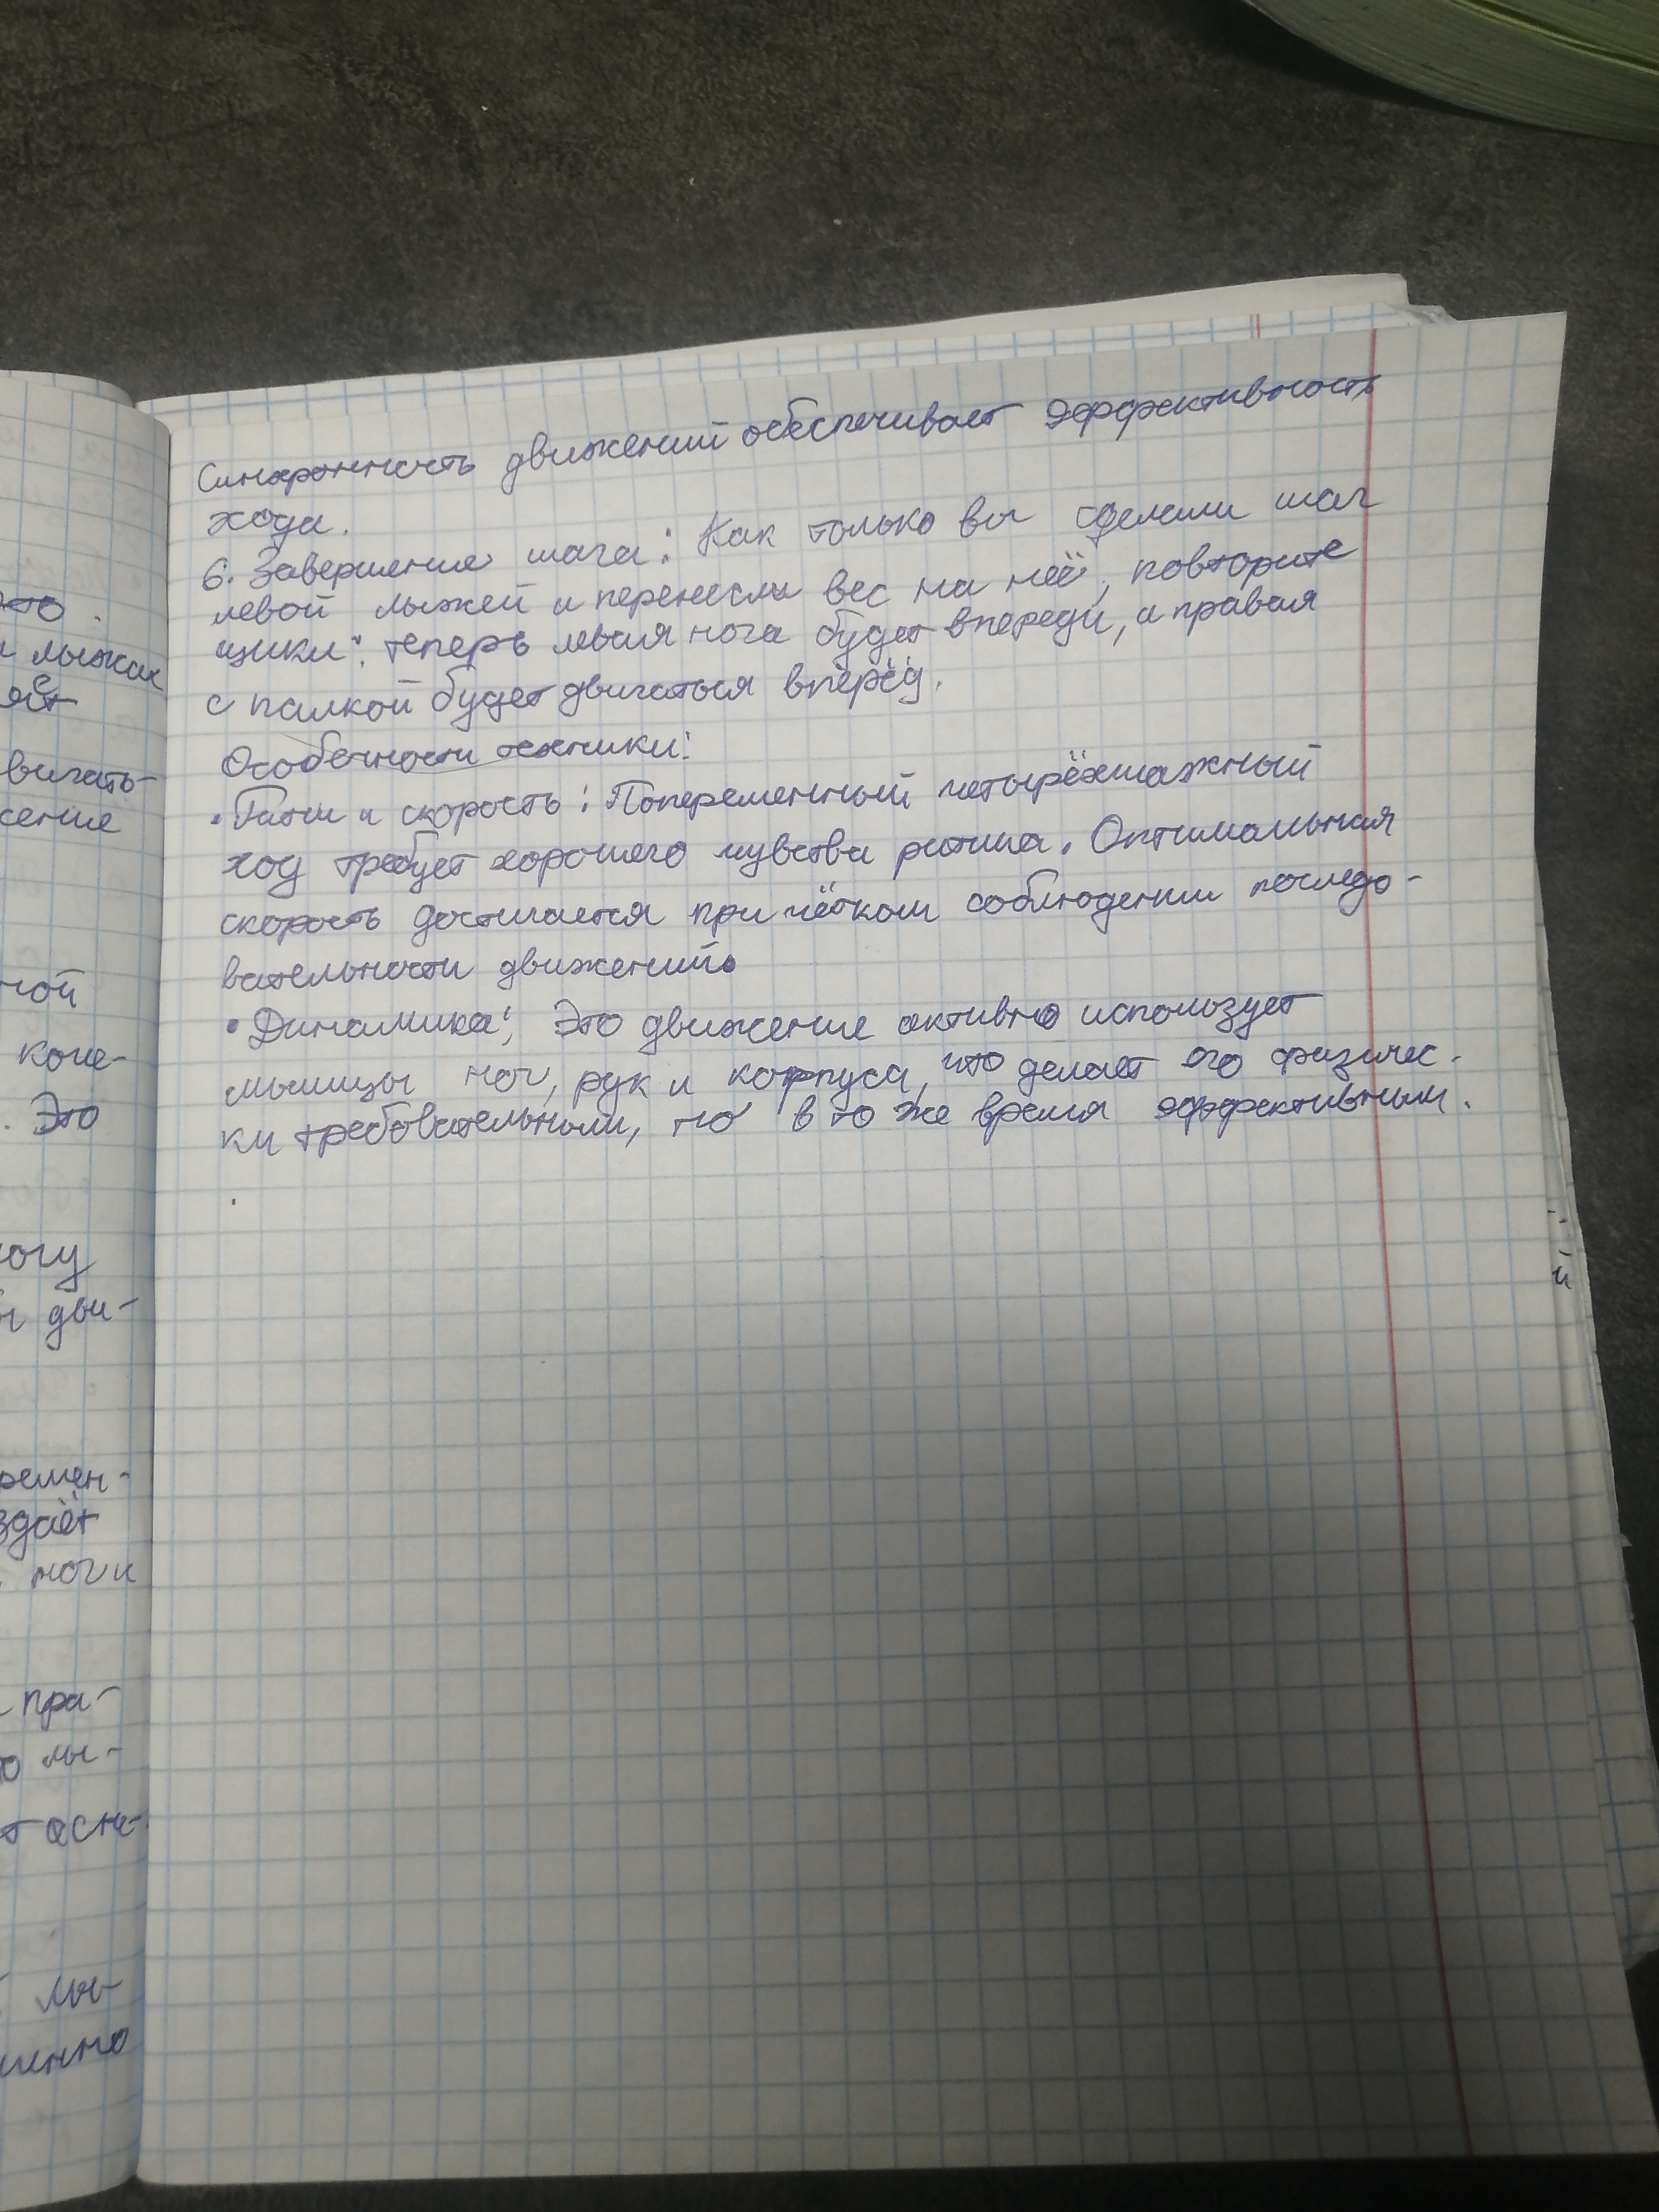 Синхронность движений обеспечивает эффективность
хода.
6. Завершение шага: Как только вы сделали шаг
левой лыжей и перенесли вес на неё, повторите
цикл: теперь левая нога будет впереди, а правая
с палкой будет двигаться вперёд.
Особенности техники:
• Ритм и скорость: Попеременный четырёхшажный
ход требует хорошего чувства ритма. Оптимальная
скорость достигается при чётком соблюдении последо-
вательности движений.
• Динамика: Это движение активно использует
мышцы ног, рук и корпуса, что делает его физичес-
ки требовательным, но в то же время эффективным.
это
лыжах
вигать-
сение
ной
коле-
. Это
ногу
дви-
ремен-
здаёт
ноги
пра-
лы-
лы-